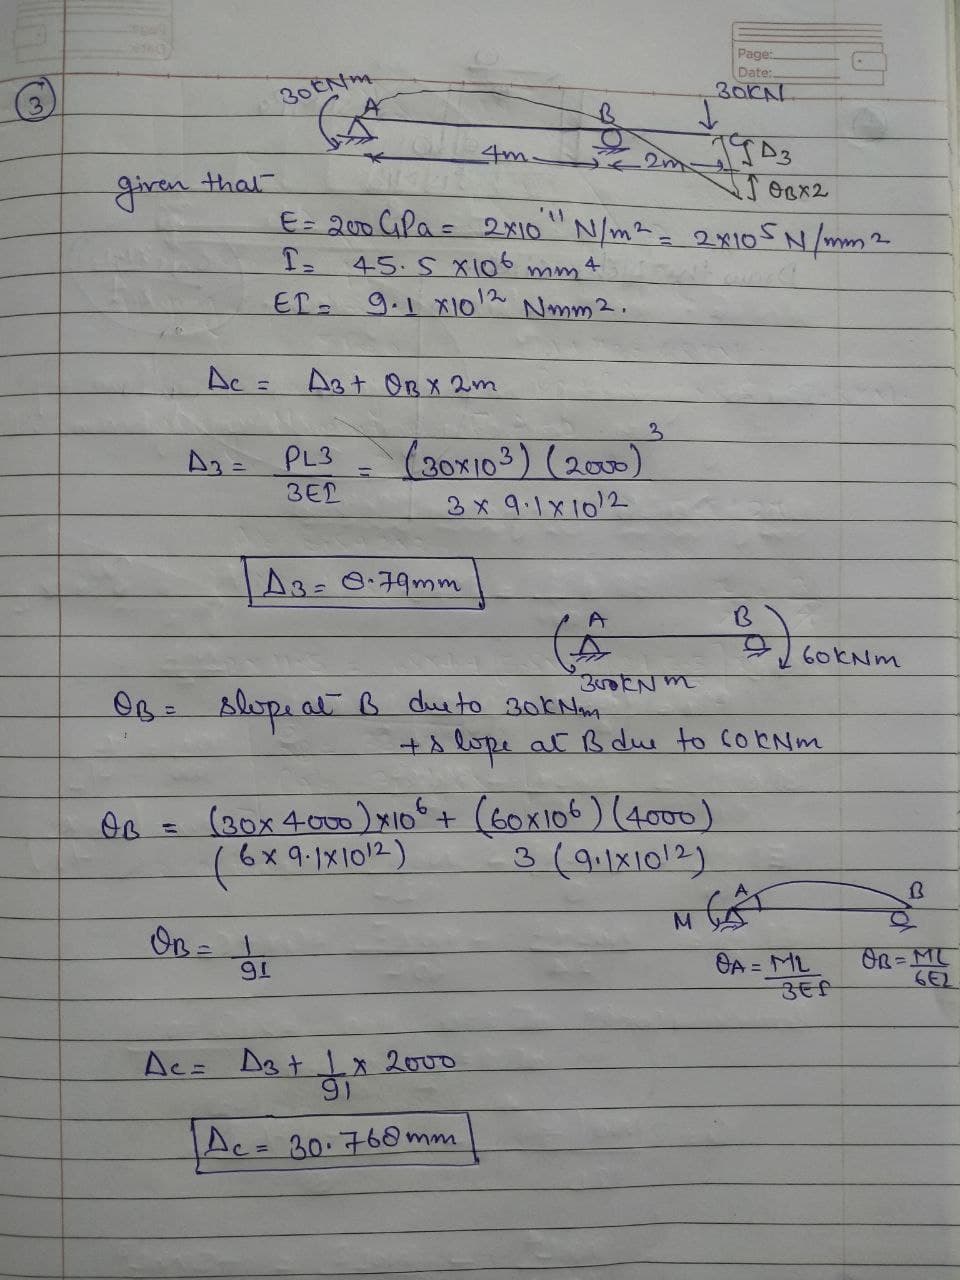 Page:
Date:
3
30KNm
A
B
30KN
C
4m
2m
Δ3
θB×2
given that
E = 200GPa = 2×10^11 N/m2 = 2×10^5 N/mm2
I = 45.5 ×10^6 mm^4
EI = 9.1 ×10^12 Nmm2.
Δc = Δ3 + θB × 2m
Δ3 = PL3/3EI = (30×10^3) (2000)^3 / 3 × 9.1×10^12
Δ3 = 8.79mm
A B
60KNm
300KNm
θB = slope at B due to 30KNm
+ slope at B due to 60KNm
θB = (30×4000)×10^6/(6×9.1×10^12) + (60×10^6)(4000)/3(9.1×10^12)
A B
M
θB = 1/91
θA = ML/3EI θB = ML/6EI
Δc = Δ3 + 1/91 × 2000
Δc = 30.768mm